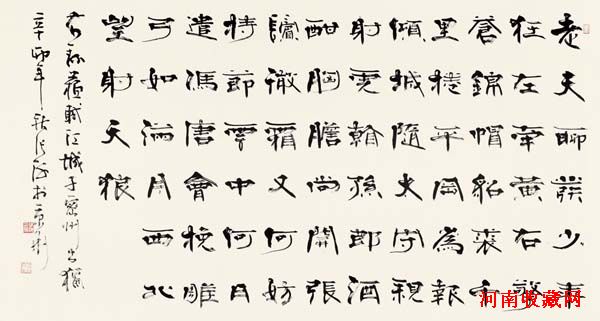 老夫聊發少年
狂左牽黃右擎
蒼錦帽貂裘千
里捲平岡為報
傾城隨太守親
射虎看孫郎酒
酣胸膽尚開張
鬢微霜又何妨
持節雲中何日
遣馮唐會挽雕
弓如滿月西北
望射天狼
右錄蘇軾江城子密州出獵
辛卯年秋於京
河南收藏网